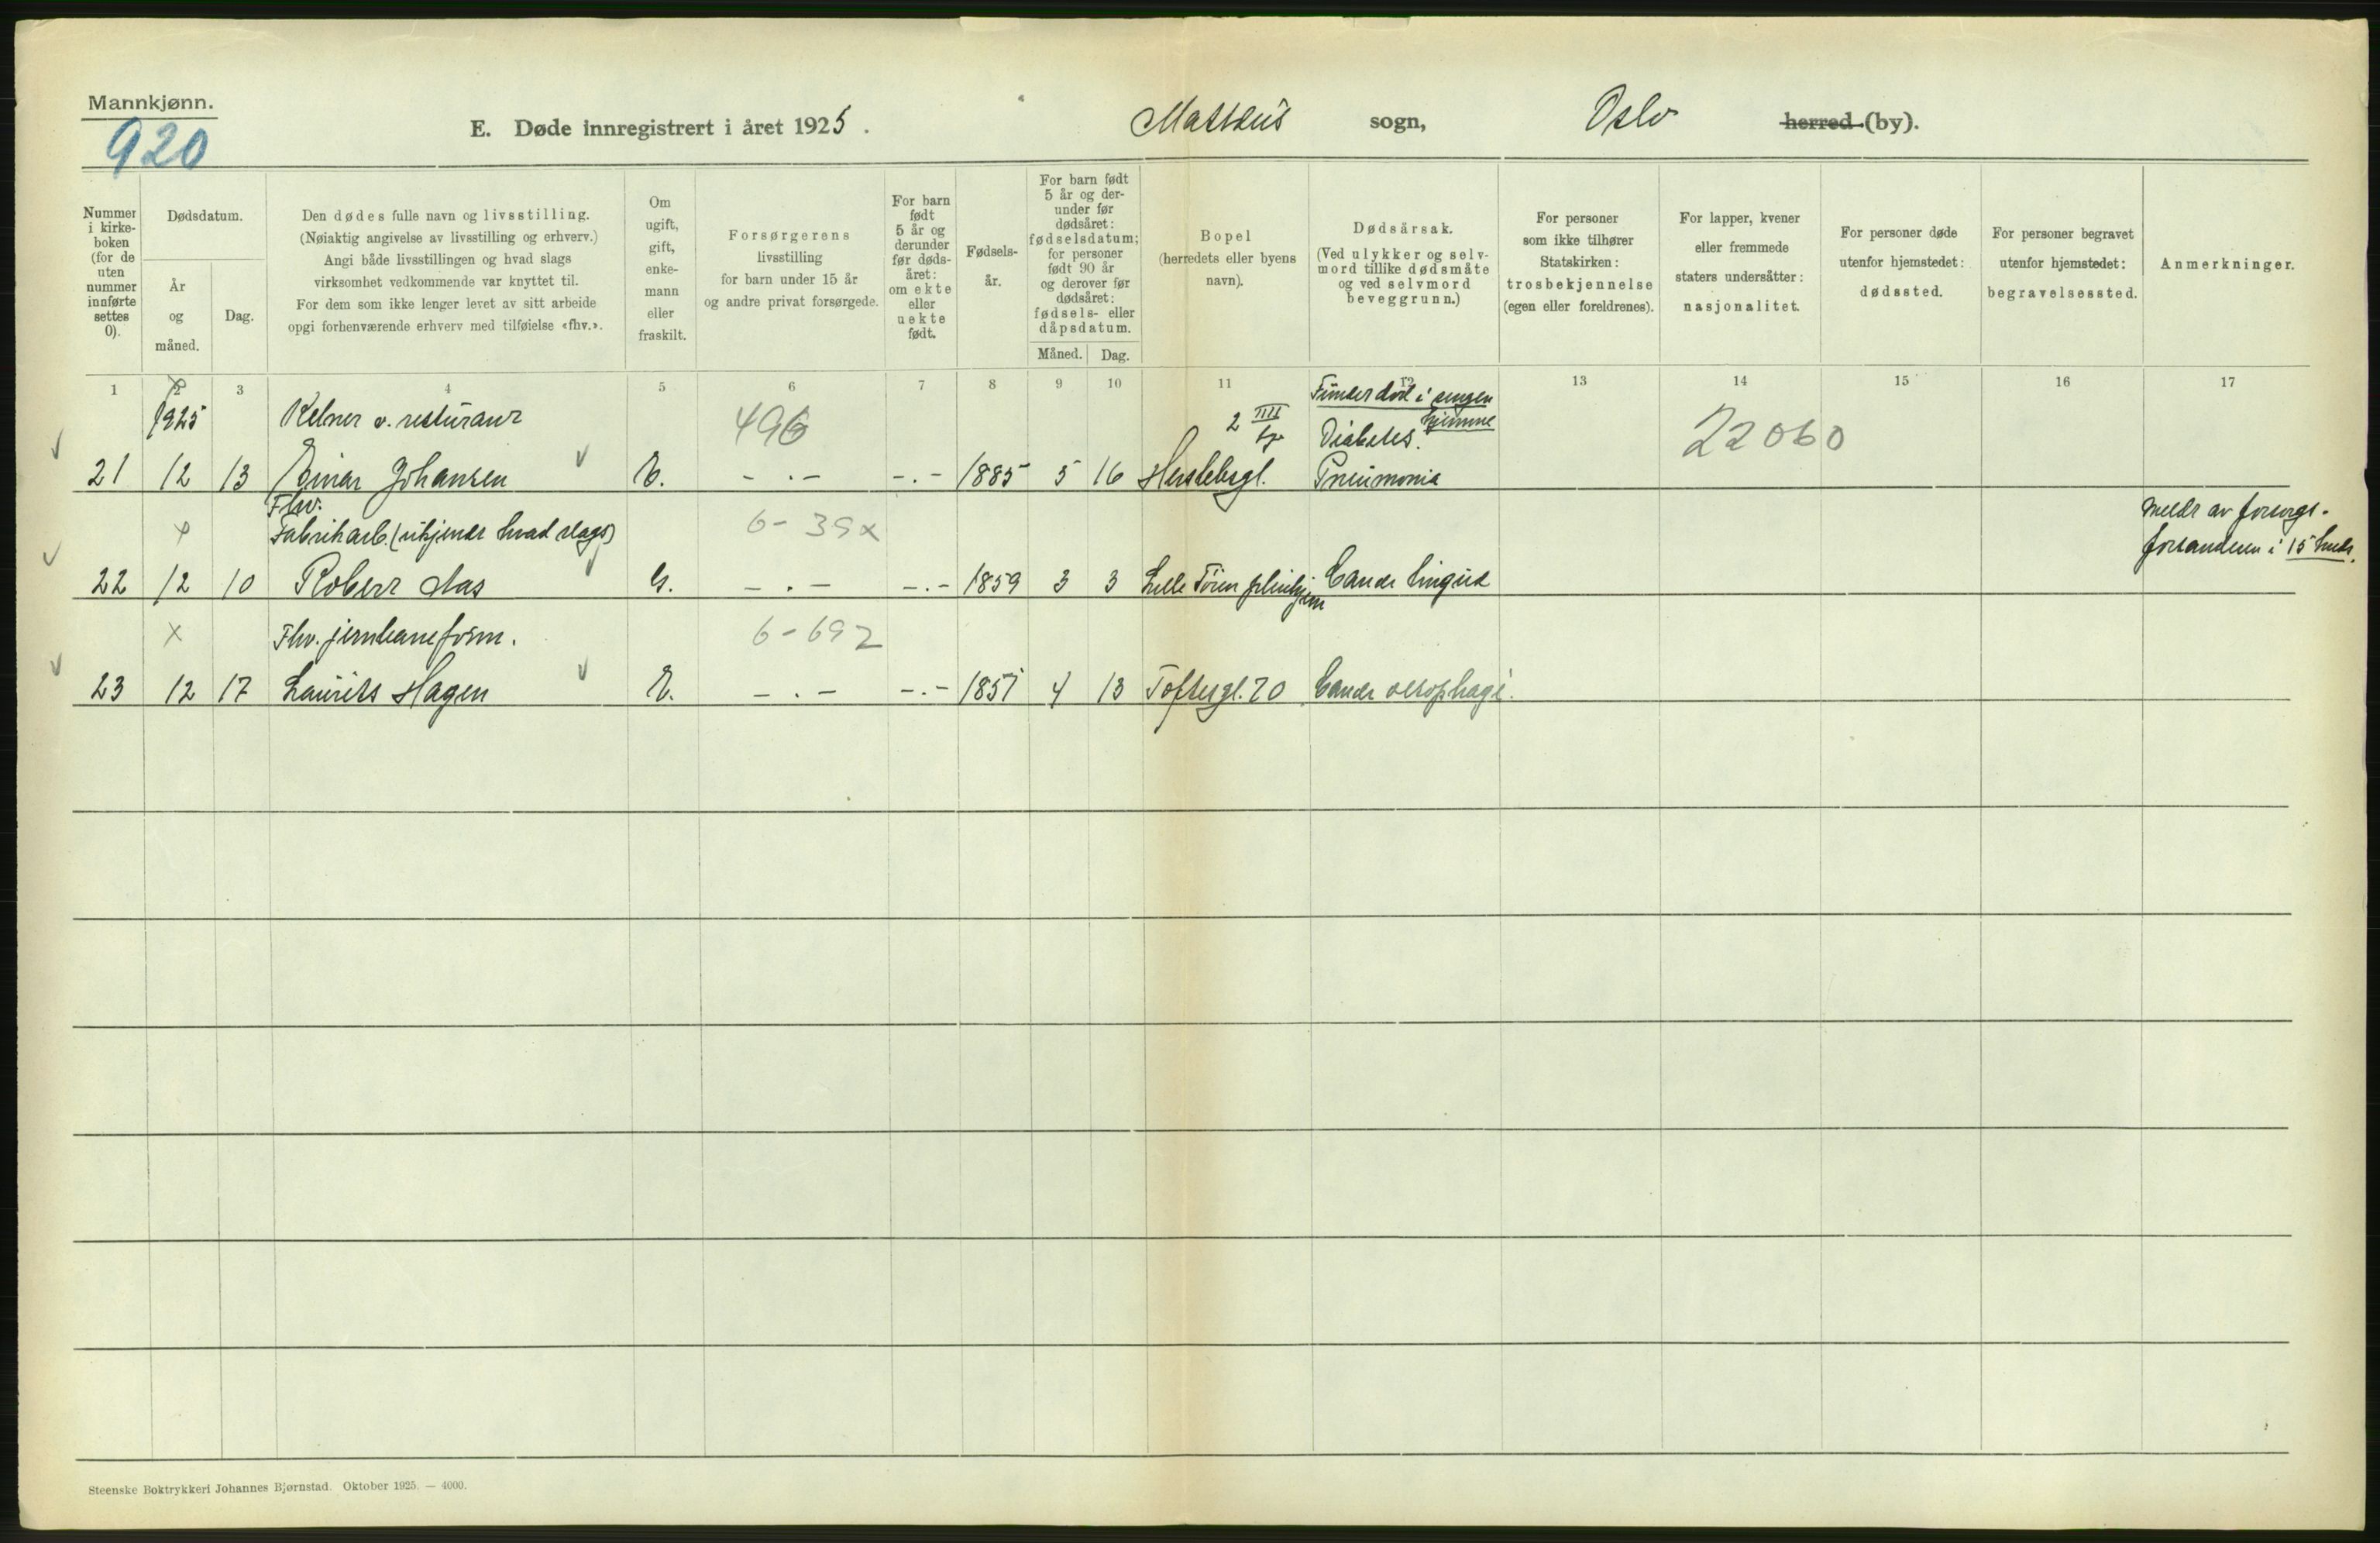 Mannkjønn.
920
E. Døde innregistrert i året 1925.
Matteus sogn,
Oslo herred (by).
Nummer i kirke-boken (for de uten nummer innførte settes 0).
Dødsdatum.
År og måned.
Dag.
Den dødes fulle navn og livsstilling.
(Nøiaktig angivelse av livsstilling og erhverv.)
Angi både livsstillingen og hvad slags
virksomhet vedkommende var knyttet til.
For dem som ikke lenger levet av sitt arbeide
opgi forhenværende erhverv med tilføielse «fhv.».
Om ugift, gift, enke-mann eller fraskilt.
Forsørgerens
livsstilling
for barn under 15 år
og andre privat forsørgede.
For barn født 5 år og derunder før døds-året: om ekte eller uekte født.
Fødsels-år.
For barn født 5 år og der-under før dødsåret: fødselsdatum; for personer født 90 år og derover før dødsåret: fødsels- eller dåpsdatum.
Måned.
Dag.
Bopel
(herredets eller byens
navn).
Dødsårsak.
(Ved ulykker og selv-
mord tillike dødsmåte
og ved selvmord
beveggrunn.)
For personer
som ikke tilhører
Statskirken:
trosbekjennelse
(egen eller foreldrenes).
For lapper, kvener
eller fremmede
staters undersåtter:
nasjonalitet.
For personer døde
utenfor hjemstedet:
dødssted.
For personer begravet
utenfor hjemstedet:
begravelsessted.
Anmerkninger.
1 2 3 4 5 6 7 8 9 10 11 12 13 14 15 16 17
1925 Kelner v. resturant 496 2 Funder død i sengen hjemme
Diabetes. 22060
21 12 13 Einar Johansen - . - - . - 1885 5 16 Herslebsgt. Pneumonia
Fhv.
Fabrikarb. (ukjendt hvad slags) 6-39x
22 12 10 Robert Aas G. - . - - . - 1859 3 3 Lille Tøien pleiehjem Cancer lingua
Meldt av forsorgs-
forstanderen i 15
x Fhv. jernbaneform. 6-692
23 12 17 Laurits Hagen E. - . - - . - 1857 4 13 Toftesgt. 70 Cancer oesophagi.
Steenske Boktrykkeri Johannes Bjørnstad. Oktober 1925. — 4000.